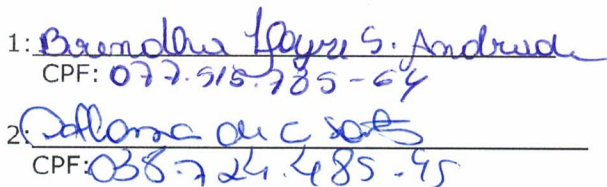 1: Brendha Hayre S. Andrade
CPF: 077.515.785-64
2: de C Santos
CPF: 038.724.485-45